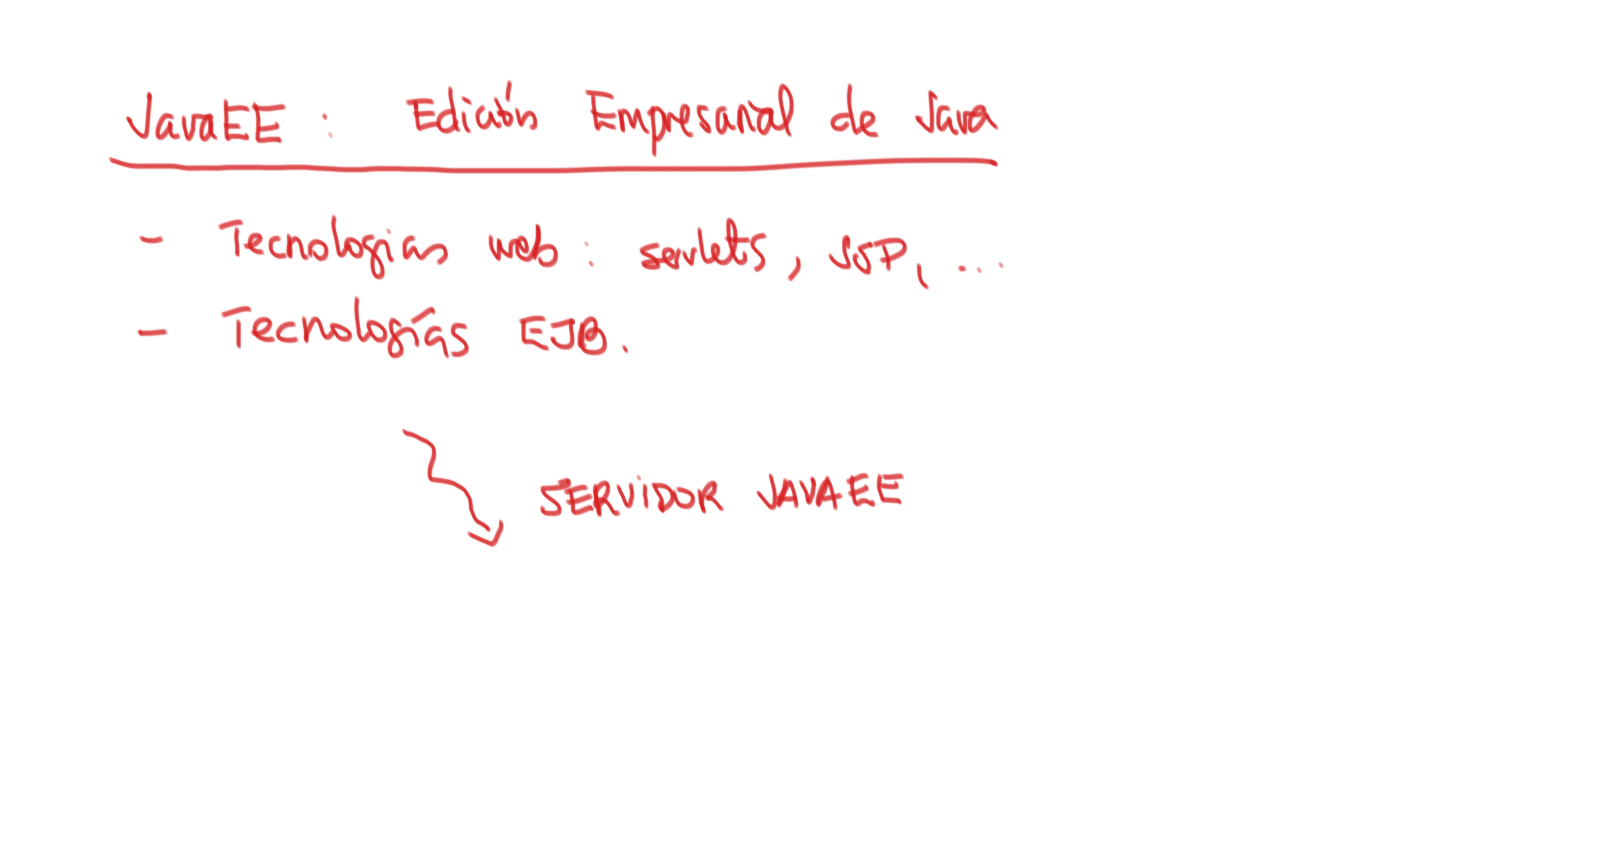 JavaEE : Edición Empresarial de Java
- Tecnologias web : servlets, JSP, ...
- Tecnologías EJB.
SERVIDOR JAVAEE